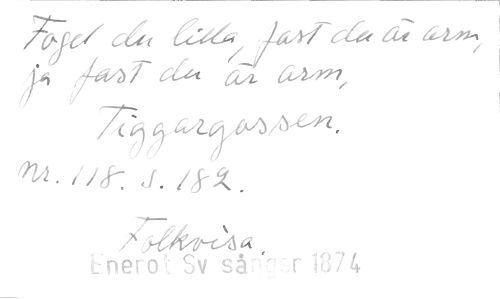 Fogel du lilla, fast du är arm,
ja fast du är arm,
Tiggargossen.
nr. 118. s. 182.
Folkvisa.
Enerot Sv sånger 1874